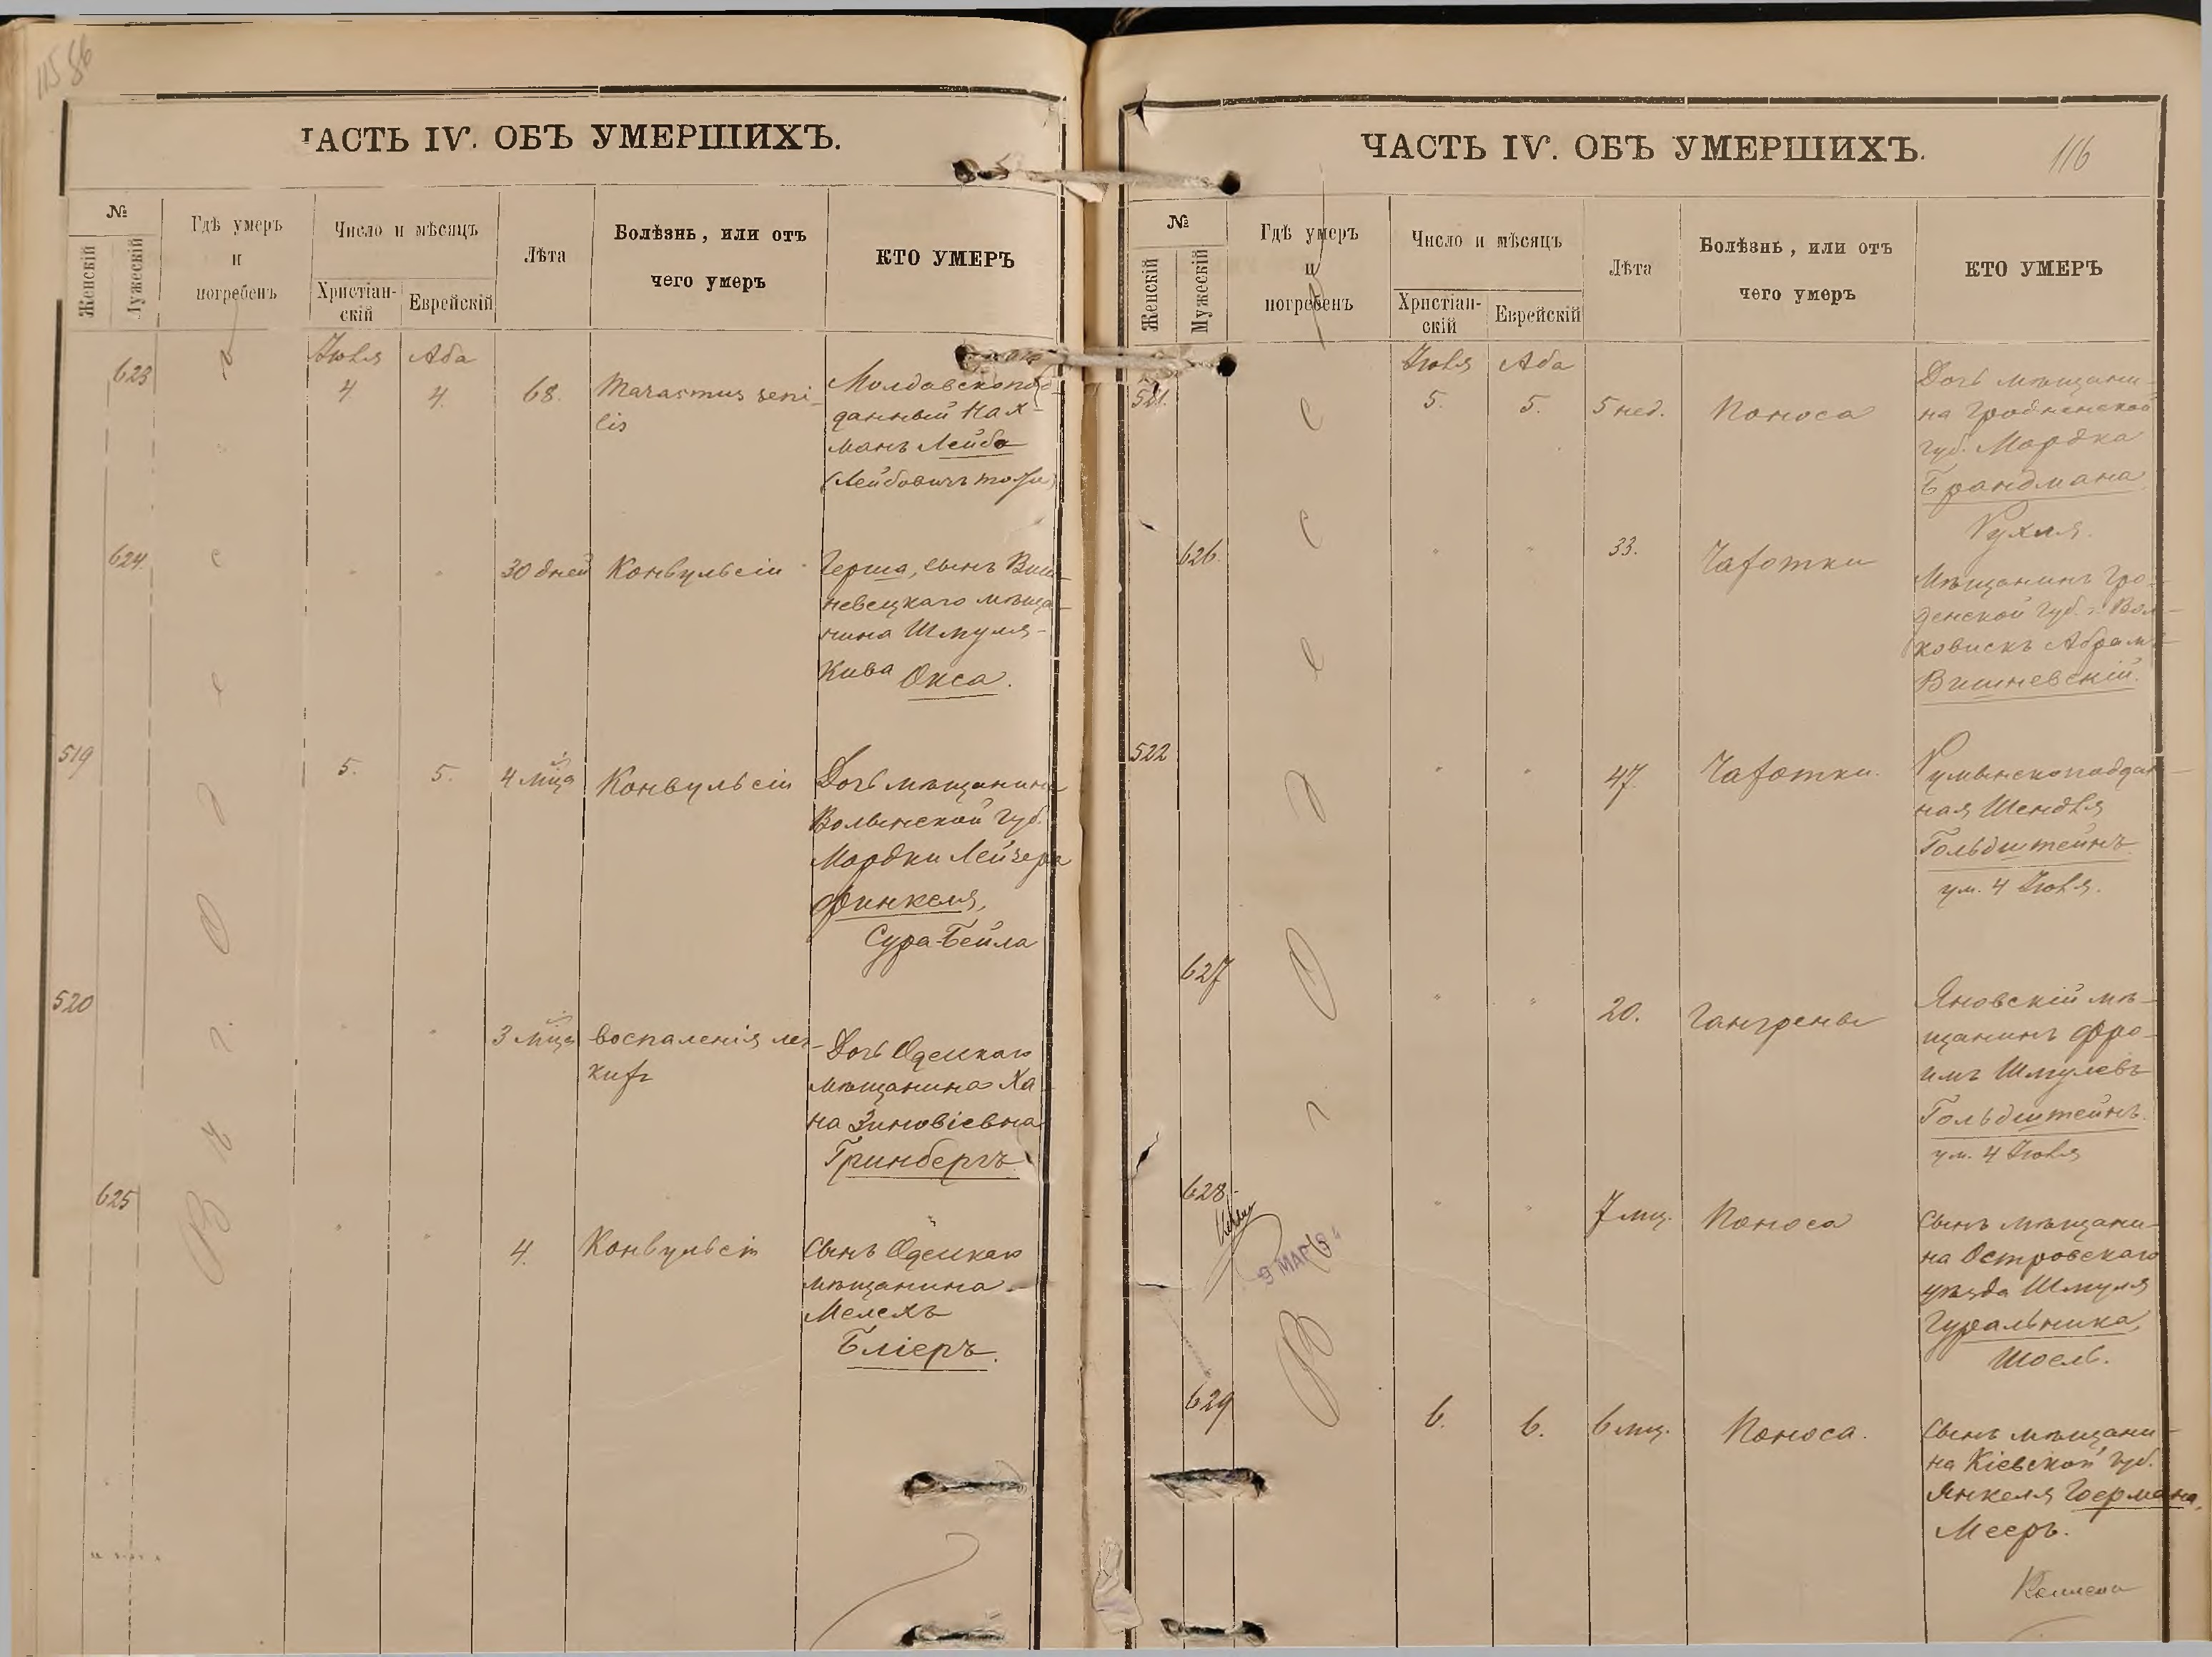 115
86
ЧАСТЬ IV. ОБЪ УМЕРШИХЪ.
№
Женскій
Мужескій
Гдѣ умеръ
и
погребенъ
Число и мѣсяцъ
Христіан-
скій
Еврейскій
Лѣта
Болѣзнь, или отъ
чего умеръ
КТО УМЕРЪ
въ г. Одессѣ
Іюля
Аба
623
4
4.
68.
Marasmus seni-
lis
Молдавскопод-
данный Нах-
манъ Лейба
(Лейбовичъ тожъ)
624.
"
"
30 дней
Конвульсіи
Герша, сынъ Виш-
невецкаго мѣща-
нина Шмуля-
Кива Окса.
519
5.
5.
4 мѣсяца
Конвульсіи
Дочь мѣщанина
Волынской губ.
Мордки Лейзера
Финкеля,
Сура-Бейла
520
"
"
3 мѣсяца
воспаленія лег-
кихъ
Дочь Одесскаго
мѣщанина Ха-
на Зиновіевна
Гринбергъ
625
"
"
4.
Конвульсіи
Сынъ Одесскаго
мѣщанина
Мелехъ
Бліеръ.
ЧАСТЬ IV. ОБЪ УМЕРШИХЪ.
116
№
Женскій
Мужескій
Гдѣ умеръ
и
погребенъ
Число и мѣсяцъ
Христіан-
скій
Еврейскій
Лѣта
Болѣзнь, или отъ
чего умеръ
КТО УМЕРЪ
въ г. Одессѣ
Іюля
Аба
521.
5.
5.
5 нед.
Поноса
Дочь мѣщани-
на Гродненской
губ. Мордка
Брандмана
Рухля.
626.
"
"
33.
Чахотки
Мѣщанинъ Гро-
денской губ. г. Вол-
ковискъ Абрамъ-
Вишневскій.
522
"
"
47.
Чахотки.
Румынскоподдан-
ная Шендля
Гольдштейнъ
ум. 4 Іюля.
627
"
"
20.
Гангрены
Яновскій мѣ-
щанинъ Фро-
имъ Шмулевъ
Гольдштейнъ.
ум. 4 Іюля
628.
"
"
7 мц.
Поноса
Сынъ мѣщани-
на Островскаго
уѣзда Шмуля
Гуральника,
Шоель.
9 МАР
629
6.
6.
6 мц.
Поноса.
Сынъ мѣщани-
на Кіевской губ.
Янкеля Гоермана,
Мееръ.